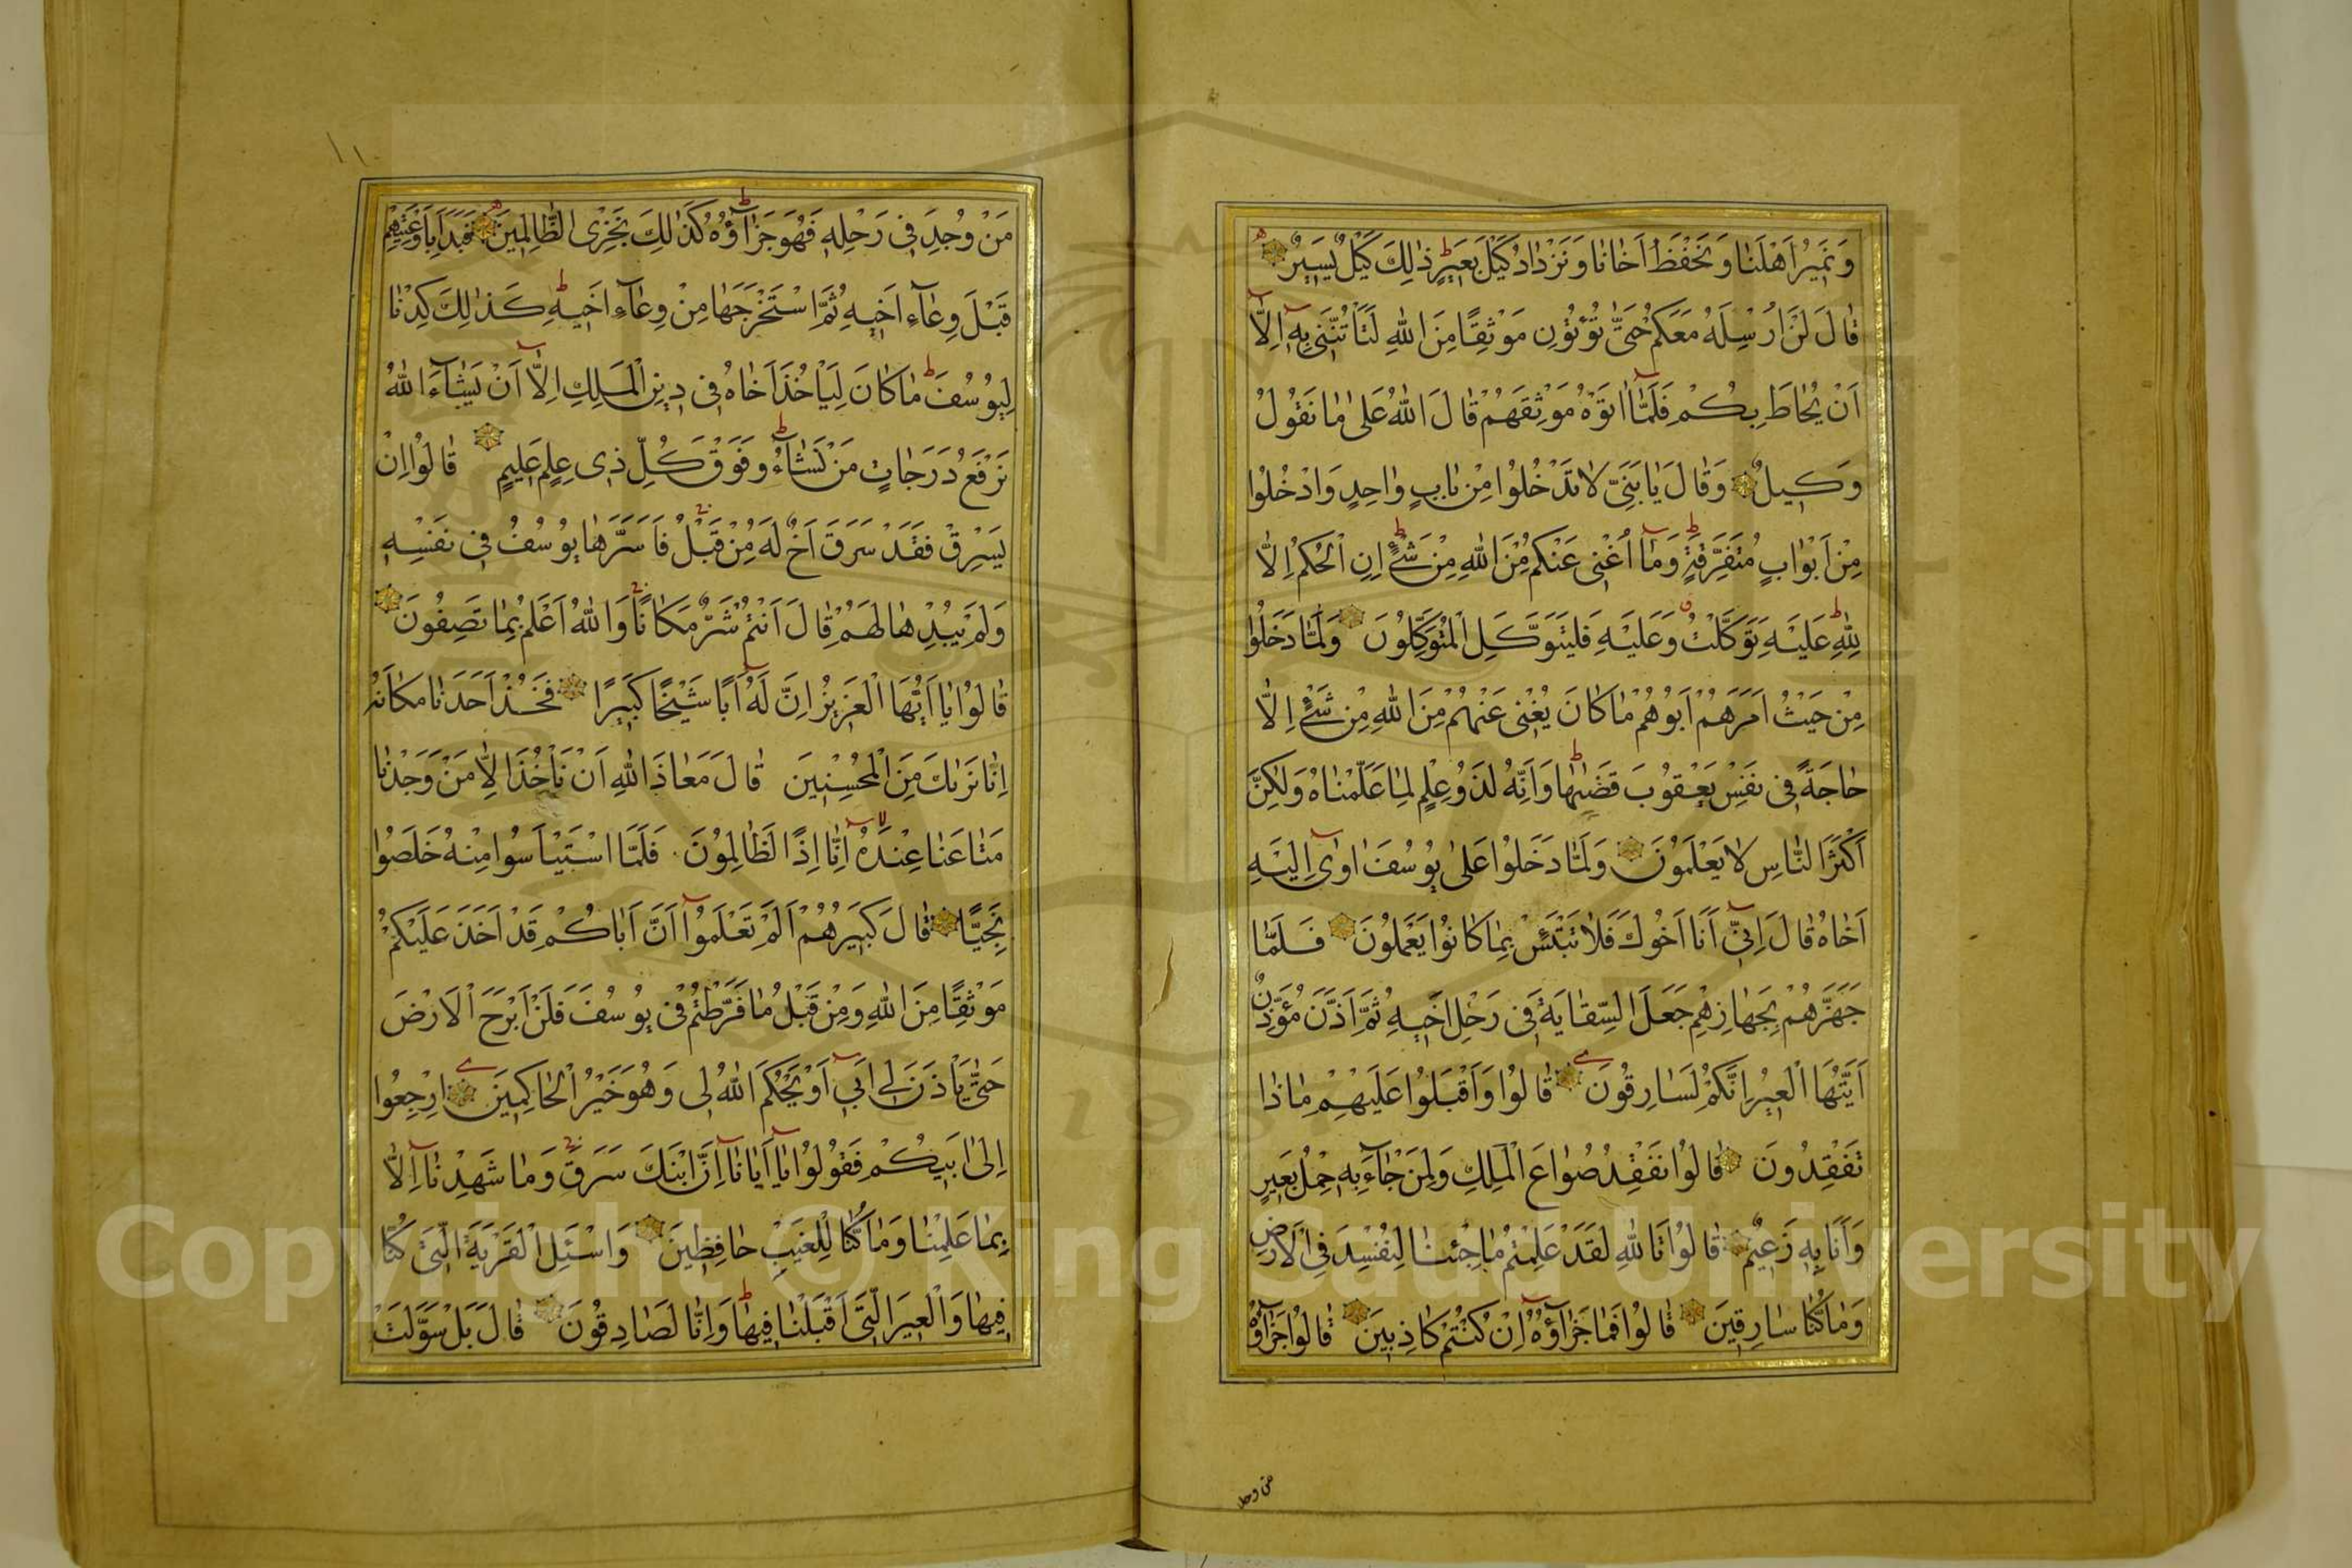 وَنَمِيرُ اَهْلَنَا وَنَحْفَظُ اَخَانَا وَنَزْدَادُ كَيْلَ بَعِيرٍ ذٰلِكَ كَيْلٌ يَسِيرٌ
قَالَ لَنْ اُرْسِلَهُ مَعَكُمْ حَتّٰى تُؤْتُونِ مَوْثِقًا مِنَ اللّٰهِ لَتَأْتُنَّنِي بِهِ اِلَّا
اَنْ يُحَاطَ بِكُمْ فَلَمَّا اٰتَوْهُ مَوْثِقَهُمْ قَالَ اللّٰهُ عَلٰى مَا نَقُولُ
وَكِيلٌ وَقَالَ يَا بَنِيَّ لَا تَدْخُلُوا مِنْ بَابٍ وَاحِدٍ وَادْخُلُوا
مِنْ اَبْوَابٍ مُتَفَرِّقَةٍ وَمَا اُغْنِي عَنْكُمْ مِنَ اللّٰهِ مِنْ شَيْءٍ اِنِ الْحُكْمُ اِلَّا
لِلّٰهِ عَلَيْهِ تَوَكَّلْتُ وَعَلَيْهِ فَلْيَتَوَكَّلِ الْمُتَوَكِّلُونَ وَلَمَّا دَخَلُوا
مِنْ حَيْثُ اَمَرَهُمْ اَبُوهُمْ مَا كَانَ يُغْنِي عَنْهُمْ مِنَ اللّٰهِ مِنْ شَيْءٍ اِلَّا
حَاجَةً فِي نَفْسِ يَعْقُوبَ قَضٰيهَا وَاِنَّهُ لَذُو عِلْمٍ لِمَا عَلَّمْنَاهُ وَلٰكِنَّ
اَكْثَرَ النَّاسِ لَا يَعْلَمُونَ وَلَمَّا دَخَلُوا عَلٰى يُوسُفَ اٰوٰى اِلَيْهِ
اَخَاهُ قَالَ اِنِّي اَنَا اَخُوكَ فَلَا تَبْتَئِسْ بِمَا كَانُوا يَعْمَلُونَ فَلَمَّا
جَهَّزَهُمْ بِجَهَازِهِمْ جَعَلَ السِّقَايَةَ فِي رَحْلِ اَخِيهِ ثُمَّ اَذَّنَ مُؤَذِّنٌ
اَيَّتُهَا الْعِيرُ اِنَّكُمْ لَسَارِقُونَ قَالُوا وَاَقْبَلُوا عَلَيْهِمْ مَاذَا
تَفْقِدُونَ قَالُوا نَفْقِدُ صُوَاعَ الْمَلِكِ وَلِمَنْ جَاءَ بِهِ حِمْلُ بَعِيرٍ
وَاَنَا بِهِ زَعِيمٌ قَالُوا تَاللّٰهِ لَقَدْ عَلِمْتُمْ مَا جِئْنَا لِنُفْسِدَ فِي الْاَرْضِ
وَمَا كُنَّا سَارِقِينَ قَالُوا فَمَا جَزَاؤُهُ اِنْ كُنْتُمْ كَاذِبِينَ قَالُوا جَزَاؤُهُ
من وجد
مَنْ وُجِدَ فِي رَحْلِهِ فَهُوَ جَزَاؤُهُ كَذٰلِكَ نَجْزِي الظَّالِمِينَ فَبَدَاَ بِاَوْعِيَتِهِمْ
قَبْلَ وِعَاءِ اَخِيهِ ثُمَّ اسْتَخْرَجَهَا مِنْ وِعَاءِ اَخِيهِ كَذٰلِكَ كِدْنَا
لِيُوسُفَ مَا كَانَ لِيَأْخُذَ اَخَاهُ فِي دِينِ الْمَلِكِ اِلَّا اَنْ يَشَاءَ اللّٰهُ
نَرْفَعُ دَرَجَاتٍ مَنْ نَشَاءُ وَفَوْقَ كُلِّ ذِي عِلْمٍ عَلِيمٌ قَالُوا اِنْ
يَسْرِقْ فَقَدْ سَرَقَ اَخٌ لَهُ مِنْ قَبْلُ فَاَسَرَّهَا يُوسُفُ فِي نَفْسِهِ
وَلَمْ يُبْدِهَا لَهُمْ قَالَ اَنْتُمْ شَرٌّ مَكَانًا وَاللّٰهُ اَعْلَمُ بِمَا تَصِفُونَ
قَالُوا يَا اَيُّهَا الْعَزِيزُ اِنَّ لَهُ اَبًا شَيْخًا كَبِيرًا فَخُذْ اَحَدَنَا مَكَانَهُ
اِنَّا نَرٰيكَ مِنَ الْمُحْسِنِينَ قَالَ مَعَاذَ اللّٰهِ اَنْ نَأْخُذَ اِلَّا مَنْ وَجَدْنَا
مَتَاعَنَا عِنْدَهُ اِنَّا اِذًا لَظَالِمُونَ فَلَمَّا اسْتَيْاَسُوا مِنْهُ خَلَصُوا
نَجِيًّا قَالَ كَبِيرُهُمْ اَلَمْ تَعْلَمُوا اَنَّ اَبَاكُمْ قَدْ اَخَذَ عَلَيْكُمْ
مَوْثِقًا مِنَ اللّٰهِ وَمِنْ قَبْلُ مَا فَرَّطْتُمْ فِي يُوسُفَ فَلَنْ اَبْرَحَ الْاَرْضَ
حَتّٰى يَأْذَنَ لِي اَبِي اَوْ يَحْكُمَ اللّٰهُ لِي وَهُوَ خَيْرُ الْحَاكِمِينَ اِرْجِعُوا
اِلٰى اَبِيكُمْ فَقُولُوا يَا اَبَانَا اِنَّ ابْنَكَ سَرَقَ وَمَا شَهِدْنَا اِلَّا
بِمَا عَلِمْنَا وَمَا كُنَّا لِلْغَيْبِ حَافِظِينَ وَاسْئَلِ الْقَرْيَةَ الَّتِي كُنَّا
فِيهَا وَالْعِيرَ الَّتِي اَقْبَلْنَا فِيهَا وَاِنَّا لَصَادِقُونَ قَالَ بَلْ سَوَّلَتْ
Copyright © King Saud University